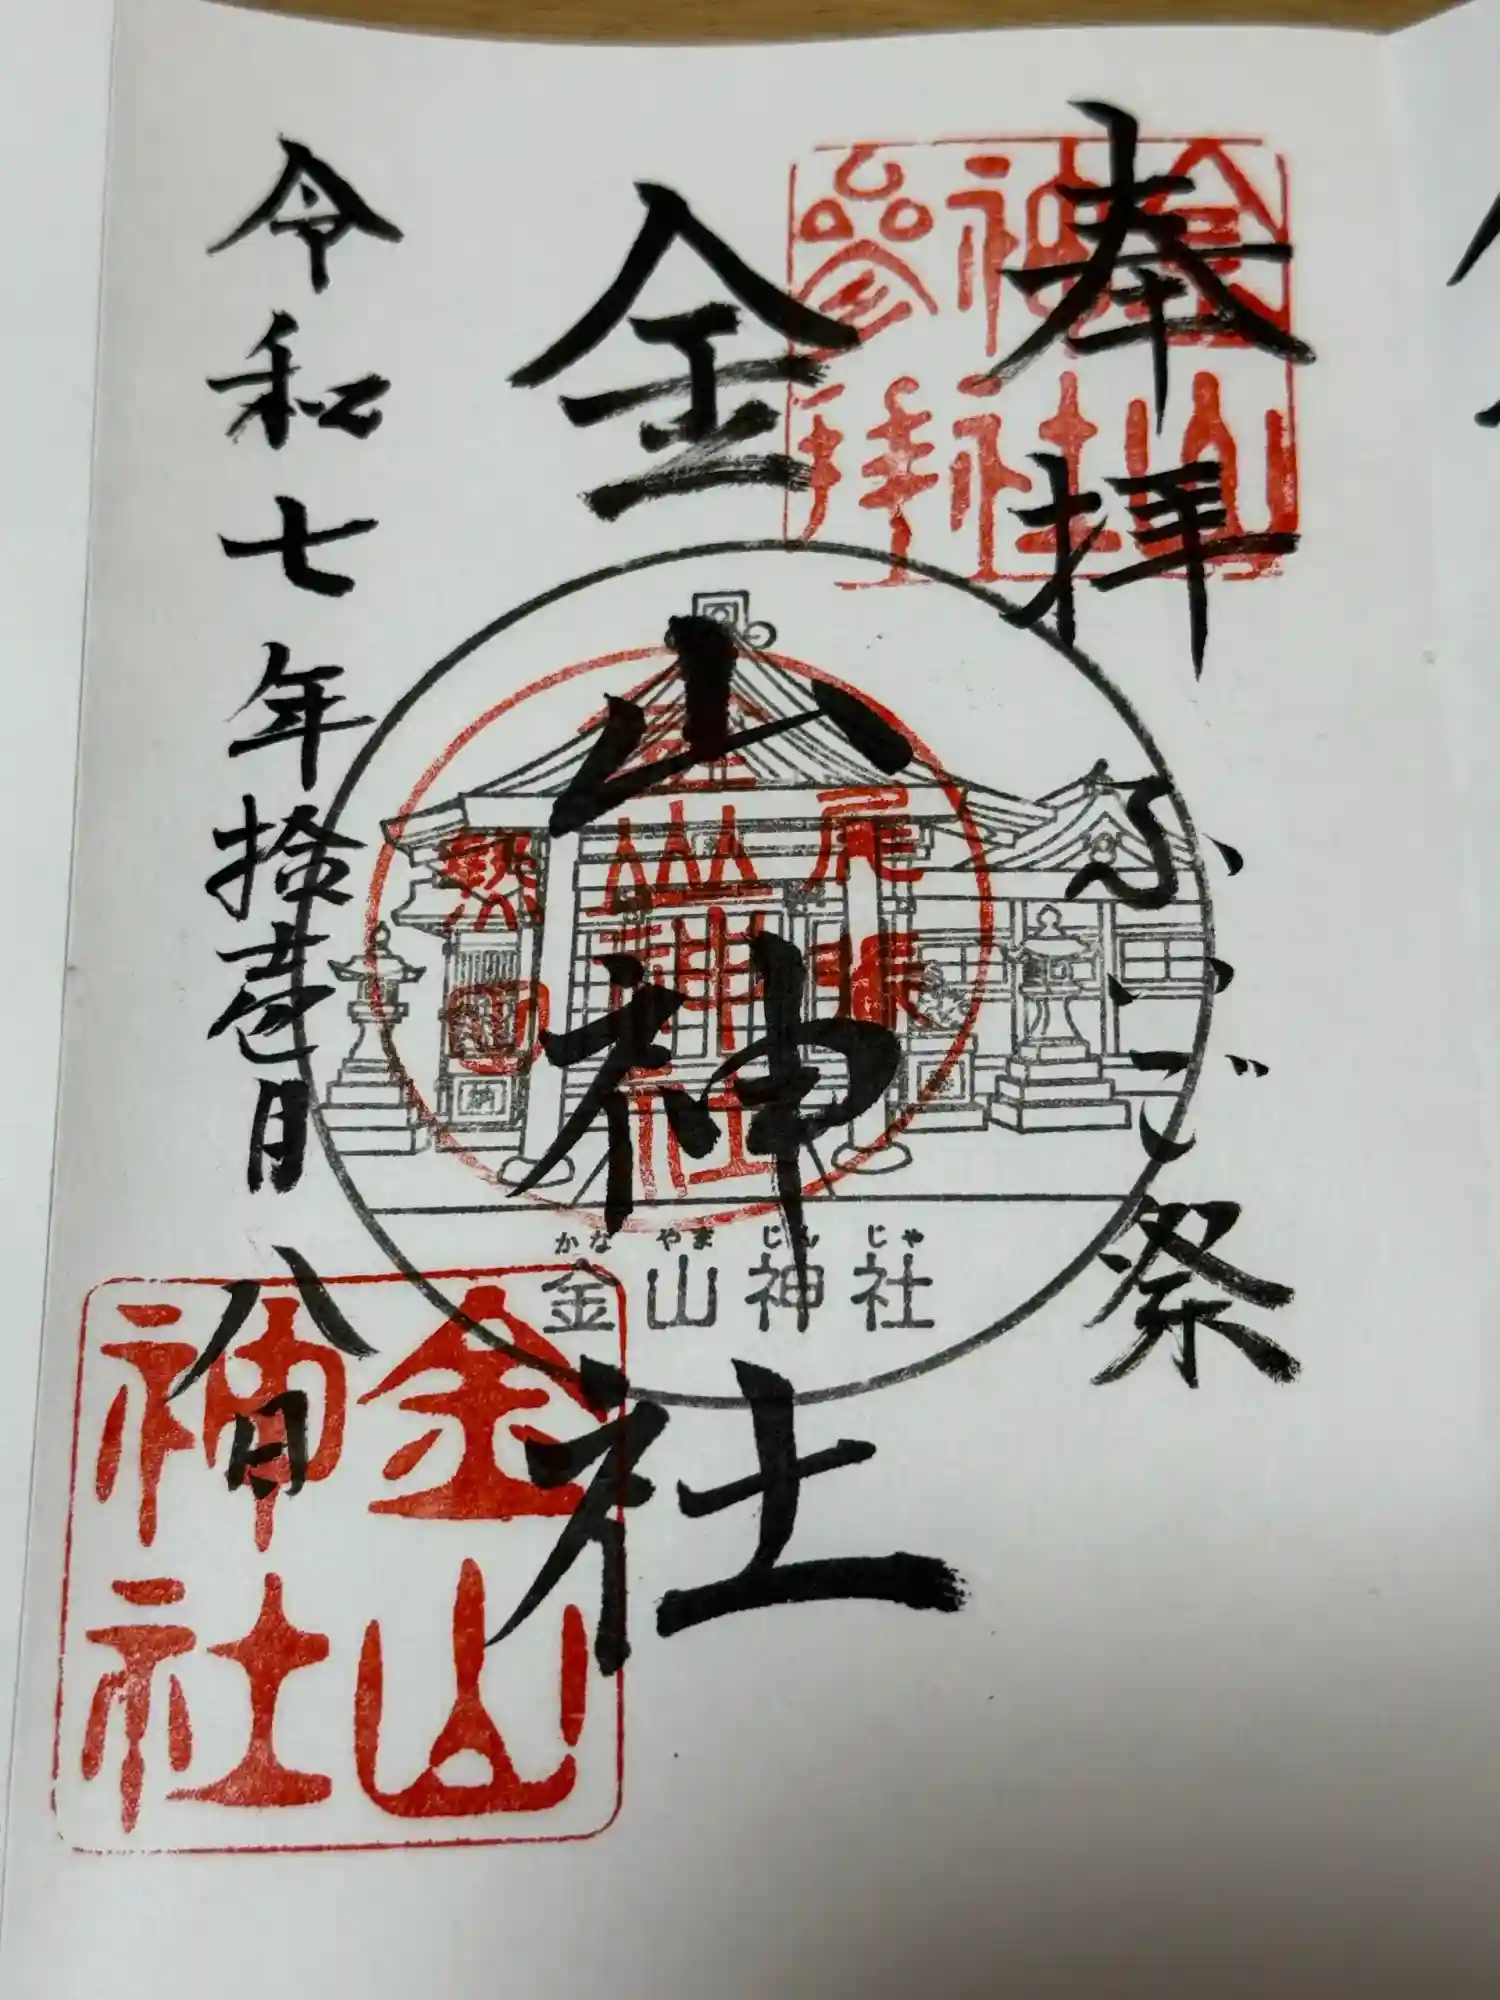 奉拝
ふいご祭
金山神社
参拝
金山神社
尾張
金山神社
熱田
納
かなやまじんじゃ
金山神社
令和七年拾壱月八日
金山神社